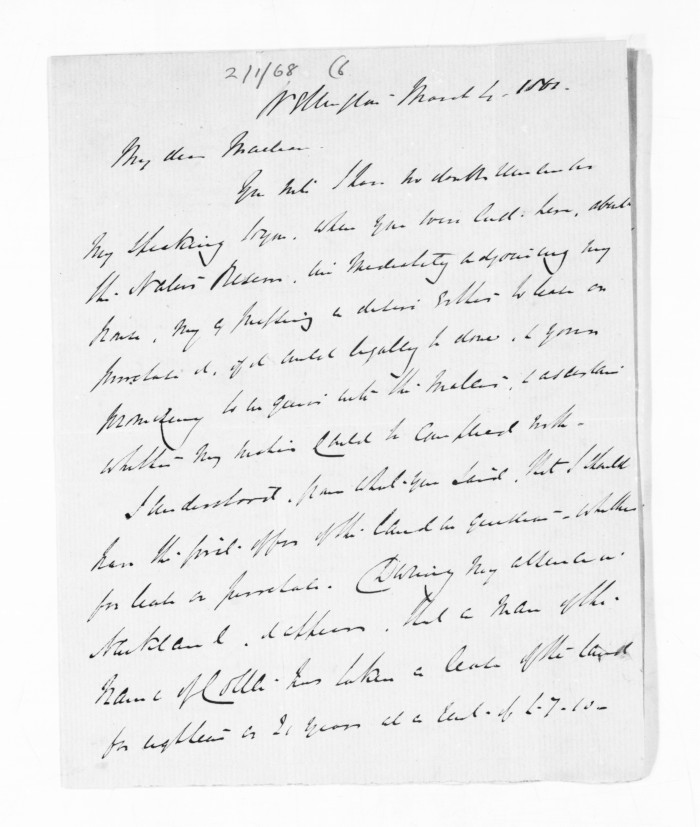 2/1/68 (6
Wellington March 4. 1861.
My dear Maclean
You will I have no doubt remember
my speaking to you, when you were last here, about
the Native Reserve, immediately adjoining my
house, my expressing a desire either to lease or
purchase it, if it could legally be done, & your
promising to enquire into the matter, & ascertain
whether my wishes could be complied with.
I understood, from what you said, that I should
have the first offer of the land in question - whether
for lease or purchase. During my absence in
Auckland, it appears, that a man of the
name of has taken a lease of the land
for eighteen or 21 years at a rent of £7-10-